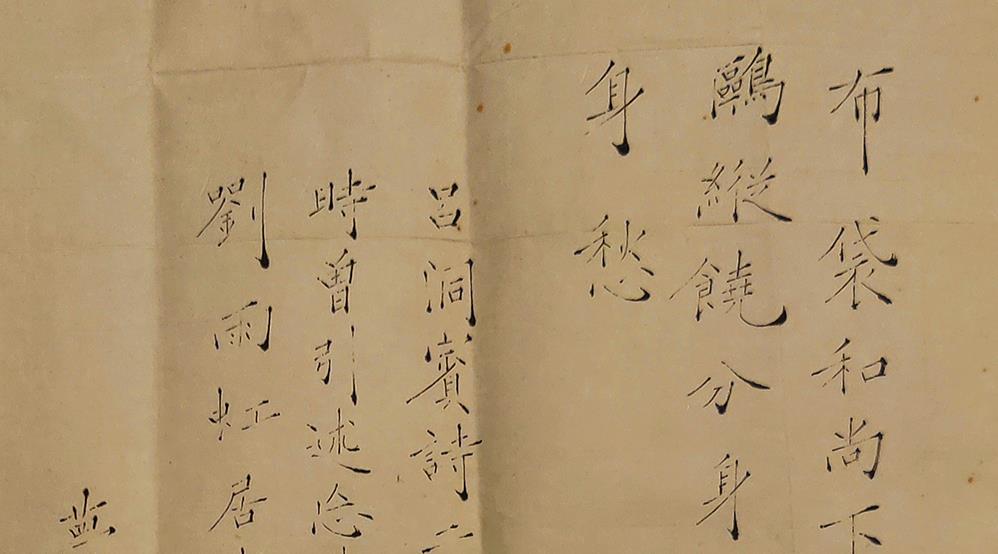 布袋和尚下
鷗縱饒分身
身愁
呂洞賓詩
時曾引述
劉雨虹居